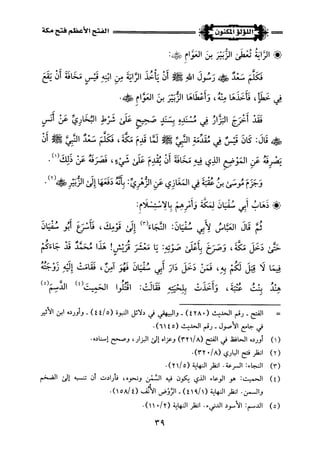 اللؤلؤ المكنون
الفتح الأعظم فتح مكة
الرَّايَةُ تُعْطَى الزُّبَيْرَ بنَ العَوَّامِ ﷺ:
فَكَلَّمَ سَعْدٌ ﷺ رَسُولَ اللهِ ﷺ أَنْ يَأْخُذَ الرَّايَةَ مِنِ ابْنِهِ قَيْسٍ مَخَافَةَ أَنْ يَقَعَ
فِي خَطَأٍ، فَأَخَذَهَا مِنْهُ، وَأَعْطَاهَا الزُّبَيْرَ بنَ العَوَّامِ
فَقَدْ أَخْرَجَ البَزَّارُ فِي مُسْنَدِهِ بِسَنَدٍ صَحِيحٍ عَلَى شَرْطِ البُخَارِيِّ عَنْ أَنَسٍ
قَالَ: كَانَ قَيْسٌ فِي مُقَدِّمَةِ النَّبِيِّ ﷺ لَمَّا قَدِمَ مَكَّةَ، فَكَلَّمَ سَعْدٌ النَّبِيَّ ﷺ أَنْ
يَصْرِفَهُ عَنِ المَوْضِعِ الذِي فِيهِ مَخَافَةَ أَنْ يُقْدِمَ عَلَى شَيْءٍ، فَصَرَفَهُ عَنْ ذَلِكَ(١).
وَجَزَمَ مُوسَى بنُ عُقْبَةَ فِي المَغَازِي عَنِ الزُّهْرِيِّ: بِأَنَّهُ دَفَعَهَا إِلَى الزُّبَيْرِ(٢).
ذَهَابُ أَبِي سُفْيَانَ لِمَكَّةَ وَأَمْرِهِمْ بِالاسْتِسْلَامِ:
ثُمَّ قَالَ العَبَّاسُ لِأَبِي سُفْيَانَ: النَّجَاءَ(٣) إِلَى قَوْمِكَ، فَأَسْرَعَ أَبُو سُفْيَانَ
حَتَّى دَخَلَ مَكَّةَ، وَصَرَخَ بِأَعْلَى صَوْتِهِ: يَا مَعْشَرَ قُرَيْشٍ! هَذَا مُحَمَّدٌ قَدْ جَاءَكُمْ
فِيمَا لَا قِبَلَ لَكُمْ بِهِ، فَمَنْ دَخَلَ دَارَ أَبِي سُفْيَانَ فَهُوَ آمِنٌ، فَقَامَتْ إِلَيْهِ زَوْجَتُهُ
هِنْدُ بِنْتُ عُتْبَةَ، وَأَخَذَتْ بِلِحْيَتِهِ فَقَالَتْ: اقْتُلُوا الحَمِيتَ(٤) الدَّسِمَ(٥)
= الفتح - رقم الحديث (٤٢٨٠) - والبيهقي في دلائل النبوة (٤٤/٥) - وأورده ابن الأثير
في جامع الأصول - رقم الحديث (٦١٤٥).
(١) أورده الحافظ في الفتح (٣٢١/٨) وعزاه إلى البزار، وصحح إسناده.
(٢) انظر فتح الباري (٣٢٠/٨).
(٣) النجاء: السرعة. انظر النهاية (٢١/٥).
(٤) الحميت: هو الوعاء الذي يكون فيه السَّمْن ونحوه، فأرادت أن تنسبه إلى الضخم
والسمن. انظر النهاية (٤١٩/١) - الرَّوْض الأُنُف (١٥٨/٤).
(٥) الدسم: الأسود الدنيء. انظر النهاية (١١٠/٢).
٣٩